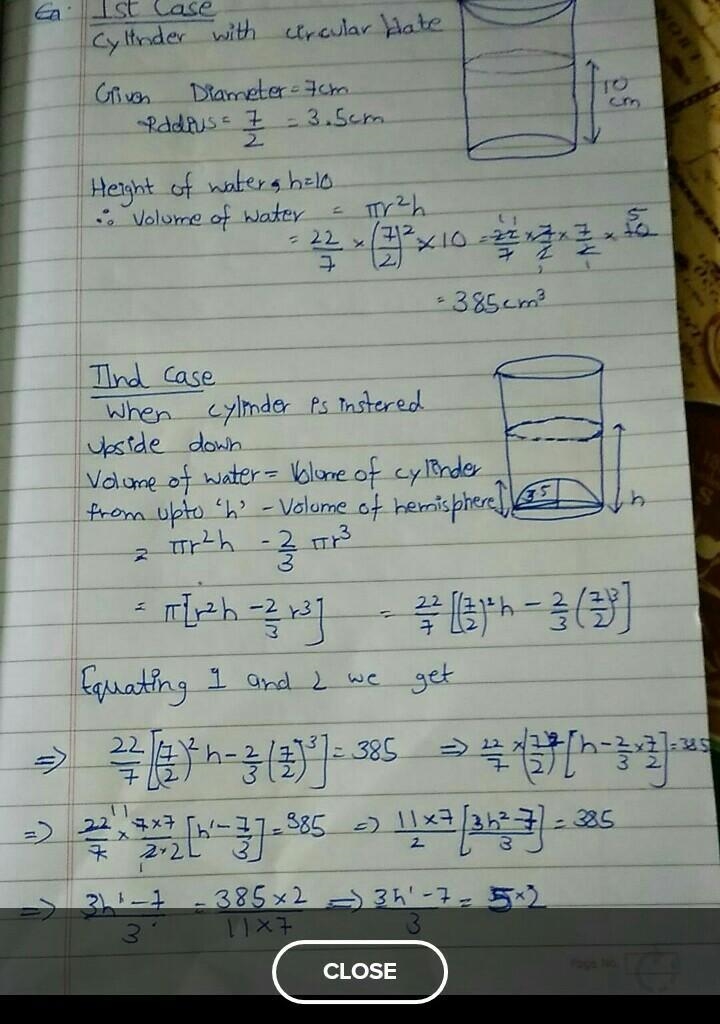 Ist Case
Cylinder with circular
Given Diameter = 7cm
Radius = 7/2 = 3.5cm
10 cm
Height of water, h=10
∴ Volume of water = πr²h
= 22/7 × (7/2)² × 10 = 22/7 × 7/2 × 7/2 × 10 5
= 385cm³
IInd Case
When cylinder is instered
upside down
Volume of water = Volume of cylinder
from upto 'h' - Volume of hemisphere
3.5
h
= πr²h - 2/3 πr³
= π[r²h - 2/3 r³] = 22/7 [(7/2)²h - 2/3 (7/2)³]
Equating 1 and 2 we get
⇒ 22/7 [(7/2)² h - 2/3 (7/2)³] = 385 ⇒ 22/7 × (7/2)² [h - 2/3 × 7/2] = 385
⇒ 22/7 × 7×7/2×2 [h' - 7/3] = 385 ⇒ 11×7/2 [3h² - 7/3] = 385
⇒ 3h' - 7/3 = 385×2/11×7 ⇒ 3h' - 7/3 = 5×2
CLOSE
Page No.